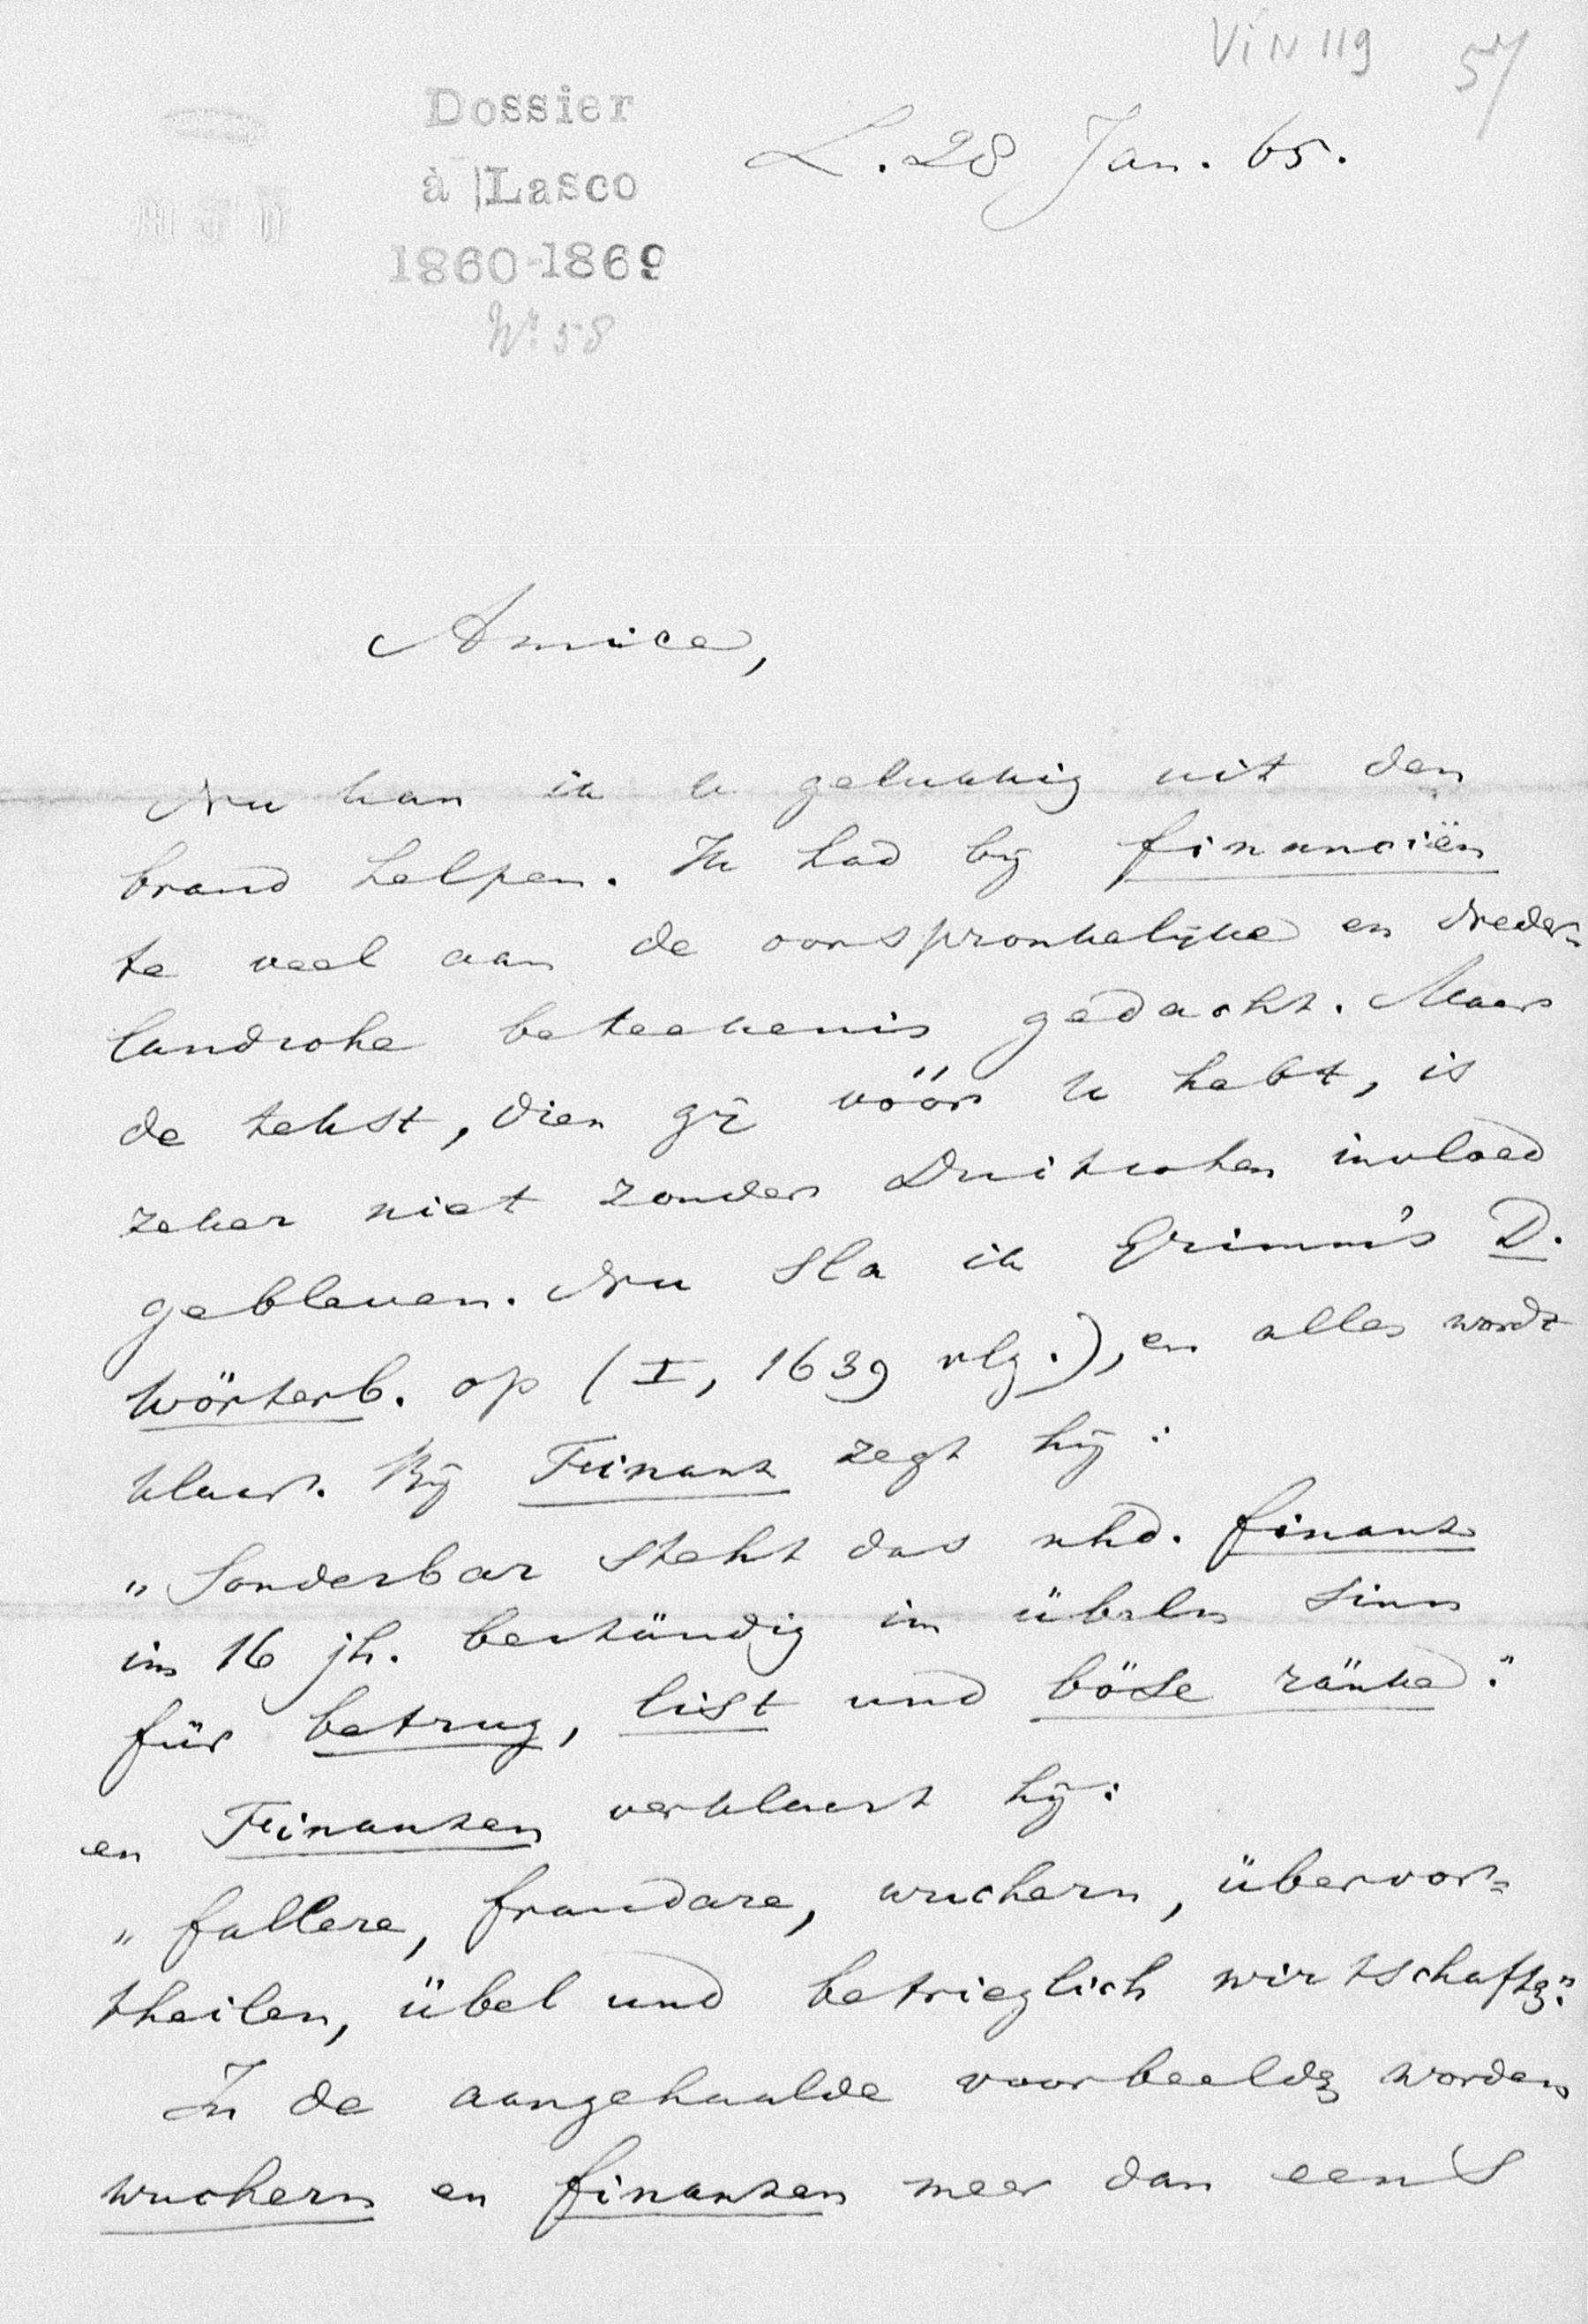 ViN 119 57
Dossier
à Lasco
1860-1869
N° 58
L. 28 Jan. 65.
Amice,
Nu kan ik u gelukkig uit den
brand helpen. Ik had bij financiën
te veel aan de oorspronkelijke en Neder=
landsche beteekenis gedacht. Maar
de tekst, dien gij vóór u hebt, is
zeker niet zonder Duitschen invloed
gebleven. Nu sla ik Grimm's D.
Wörterb. op (I, 1639 vlg.), en alles wordt
klaar. Bij Finanz zegt hij:
„Sonderbar steht das nhd. finanz
im 16 jh. beständig im übeln sinn
für betrug, list und böse ränke."
en Finanzen verklaart hij:
„fallere, fraudare, wuchern, übervor=
theilen, übel und betrieglich wirtschaften."
In de aangehaalde voorbeelden worden
wuchern en finanzen meer dan eens